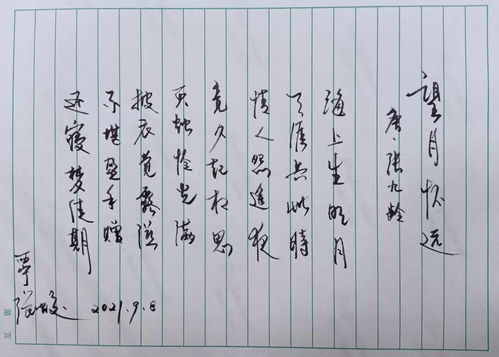 望月怀远
唐·张九龄
海上生明月
天涯共此時
情人怨遥夜
竟夕起相思
灭烛怜光满
披衣觉露滋
不堪盈手赠
还寝梦佳期
2021.9.8
第 页